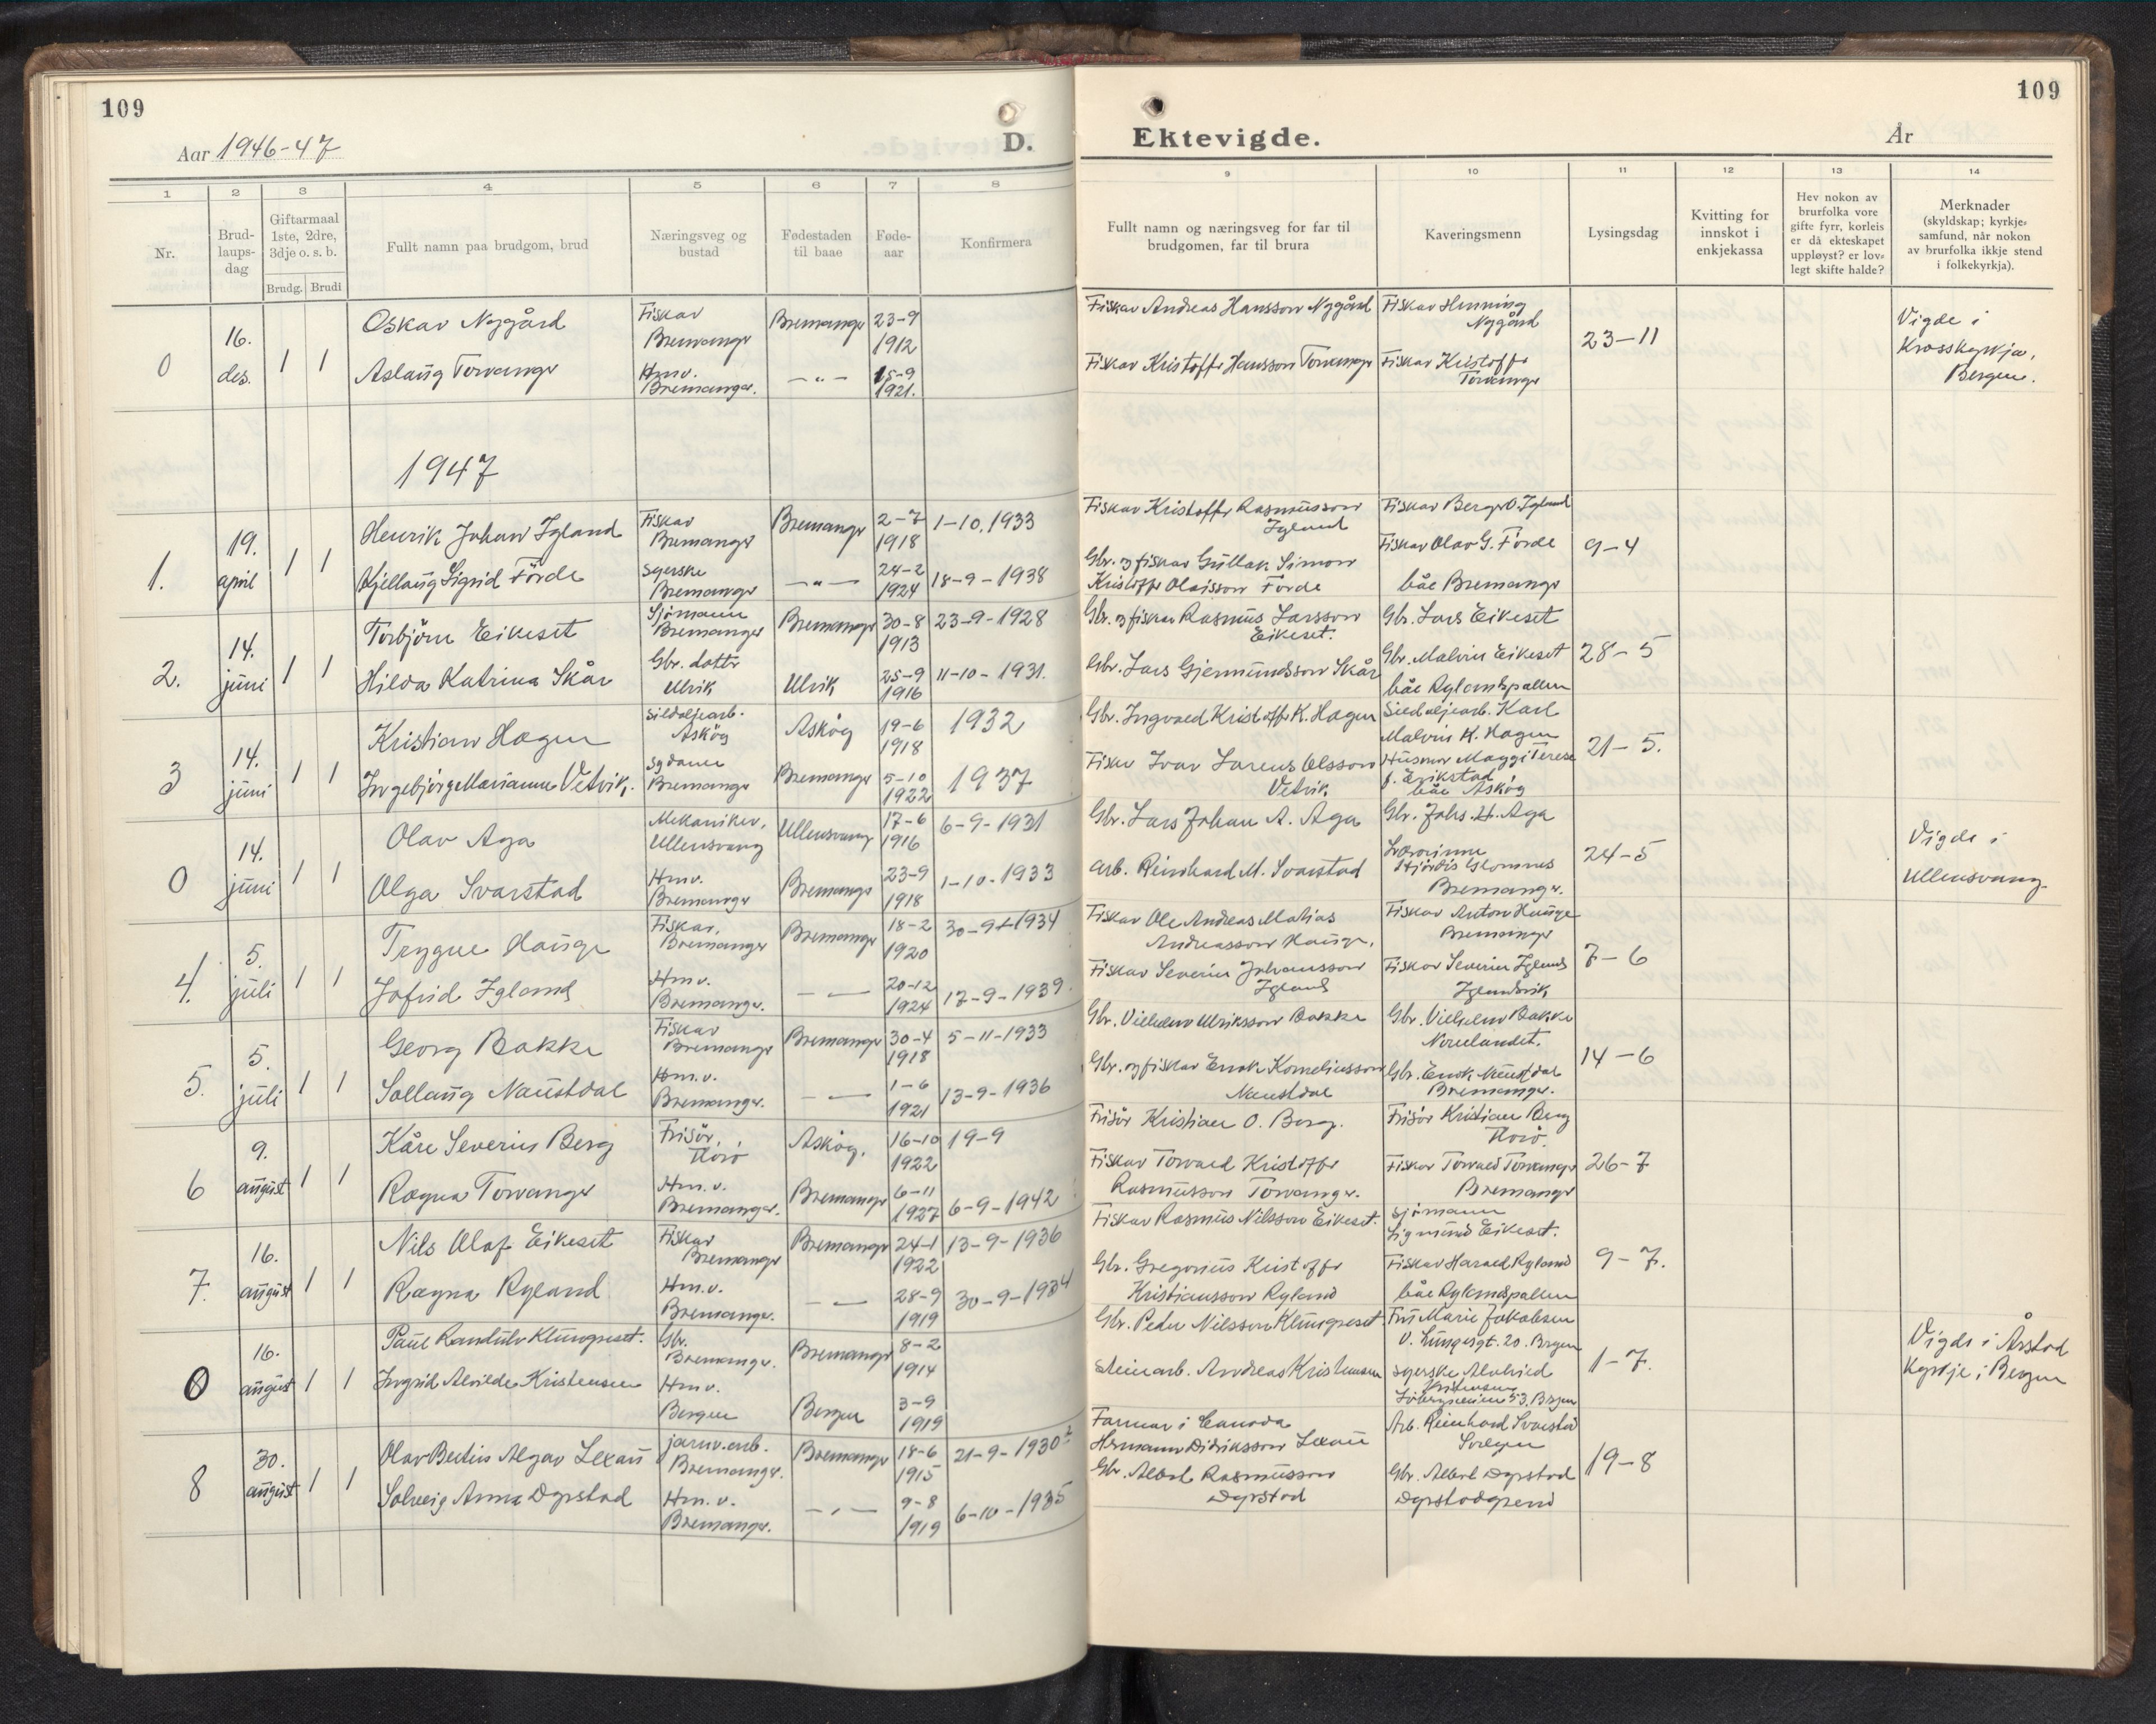 109
Aar 1946-47
D.
1 2 3 4 5 6 7 8
Nr.
Brud-
laups-
dag
Giftarmaal
1ste, 2dre,
3dje o. s. b.
Brudg. Brudi
Fullt namn paa brudgom, brud
Næringsveg og
bustad
Fødestaden
til baae
Føde-
aar
Konfirmera
0
16.
des.
1 1
Oskar Nygård
Aslaug Torvanger
Fiskar
Bremanger
Hmv.
Bremanger.
Bremanger
—"—
23-9
1912
15-9
1921.
1947
1.
19.
april
1 1
Henrik Johan Igland
Kjellaug Sigrid Förde
Fiskar
Bremanger
Syerske
Bremanger
Bremanger
—"—
2-7
1918
24-2
1924
1-10.1933
18-9-1938
2.
14.
juni
1 1
Torbjörn Eikeset
Hilda Katrina Skår
Sjømann
Bremanger
Gbr. dotter
Ulvik
Bremanger
Ulvik
30-8
1913
25-9
1916
23-9-1928
11-10-1931.
3
14.
juni
1 1
Kristian Hagen
Ingebjörg Marianne Vetvik.
Sildoljearb.
Asköy
Sydame
Bremanger
Asköy
Bremanger
19-6
1918
5-10
1922
1932
1937
0
14.
juni
1 1
Olav Aga
Olga Svarstad
Mekaniker,
Ullensvang
Hmv.
Bremanger
Ullensvang
Bremanger
17-6
1916
23-9
1918
6-9-1931
1-10-1933
4.
5.
juli
1 1
Trygve Hauge
Jofrid Igland
Fiskar,
Bremanger
Hmv.
Bremanger.
Bremanger
— —
18-2
1920
20-12
1924
30-9-1934
17-9-1939.
5.
5.
juli
1 1
Georg Bakke
Sollaug Naustdal
Fiskar
Bremanger
Hm.v.
Bremanger.
Bremanger
— —
30-4
1918
1-6
1921
5-11-1933
13-9-1936
6
9.
august
1 1
Kåre Severin Berg
Ragna Torvanger
Frisör,
Florö
Hm.v.
Bremanger.
Asköy.
Bremanger
16-10
1922
6-11
1927
19-9
6-9-1942
7.
16.
august
1 1
Nils Olaf Eikeset
Ragna Ryland
Fiskar
Bremanger
Hm.v.
Bremanger.
Bremanger
— —
24-1
1922
28-9
1919
13-9-1936
30-9-1934
0
16.
august
1 1
Paul Randulv Klungreset.
Ingrid Alvilde Kristensen
Gbr.
Bremanger.
Hmv.
Bergen
Bremanger
Bergen
8-2
1914
3-9
1919
8
30.
august
1 1
Olav Bertin Algar Lexau
Solveig Anna Dyrstad
jarnv.arb.
Bremanger.
Hm.v.
Bremanger.
Bremanger
—"—
18-6
1915
9-8
1919
21-9-1930
6-10-1935
109
Ektevigde.
År
9 10 11 12 13 14
Fullt namn og næringsveg for far til
brudgomen, far til brura
Kaveringsmenn
Lysingsdag
Kvitting for
innskot i
enkjekassa
Hev nokon av
brurfolka vore
gifte fyrr, korleis
er då ekteskapet
uppløyst? er lov-
legt skifte halde?
Merknader
(skyldskap; kyrkje-
samfund, når nokon
av brurfolka ikkje stend
i folkekyrkja).
Fiskar Andreas Hansson Nygård
Fiskar Kristoffer Hansson Torvanger
Fiskar Henning
Nygård
Fiskar Kristoffer
Torvanger
23-11
Vigde i
Krosskyrkja,
Bergen.
Fiskar Kristoffer Rasmusson
Igland
Gbr. og fiskar Gullak Simon
Kristoffer Olaisson Förde
Fiskar Berger O Igland
Fiskar Olav G. Förde
båe Bremanger
9-4
Gbr. og fiskar Rasmus Larsson
Eikeset.
Gbr. Lars Gjermundsson Skår
Gbr. Lars Eikeset
Gbr. Malvin Eikeset
båe Rylandspollen
28-5
Gbr. Ingvald Kristoffer K. Hagen
Fiskar Ivar Larens Olsson
Vetvik
Sildoljearb. Karl
Malvin K. Hagen
Husmor Maggi Terese
f. Erikstad,
båe Asköy
21-5.
Gbr. Lars Johan A. Aga
Arb. Reinhard M. Svarstad
Gbr. Johs. H. Aga
Lærarinne
Hjördis Glomnes
Bremanger.
24-5
Vigde i
Ullensvang
Fiskar Ole Andreas Matias
Andreasson Hauge,
Fiskar Severin Johansson
Igland
Fiskar Anton Hauge
Bremanger
Fiskar Severin Igland
Iglandsvik
7-6
Gbr. Vilhelm Ulriksson Bakke
Gbr. og fiskar Enok Korneliusson
Naustdal
Gbr. Vilhelm Bakke
Nordlandet.
Gbr. Enok Naustdal
Bremanger.
14-6
Frisör Kristian O. Berg.
Fiskar Torvald Kristoffer
Rasmusson Torvanger.
Frisör Kristian Berg
Florö.
Fiskar Torvald Torvanger
Bremanger
26-7
Fiskar Rasmus Nilsson Eikeset.
Gbr. Gregorius Kristoffer
Kristiansson Ryland
Sjømann
Sigmund Eikeset.
Fiskar Harald Ryland
båe Rylandspollen
9-7.
Gbr. Peder Nilsson Klungreset
Steinarb. Andreas Kristensen
Fru Marie Jakobsen
V. Lungesgt. 20. Bergen
syerske
Kristensen
53, Bergen
1-7.
Vigde i Årstad
Kyrkje i Bergen
Farmar i Canada
Hermann Didriksson Lexau
Gbr. Albert Rasmusson
Dyrstad
Arb. Reinhard Svarstad
Svelgen
Gbr. Albert Dyrstad
Dyrstadgrend
19-8